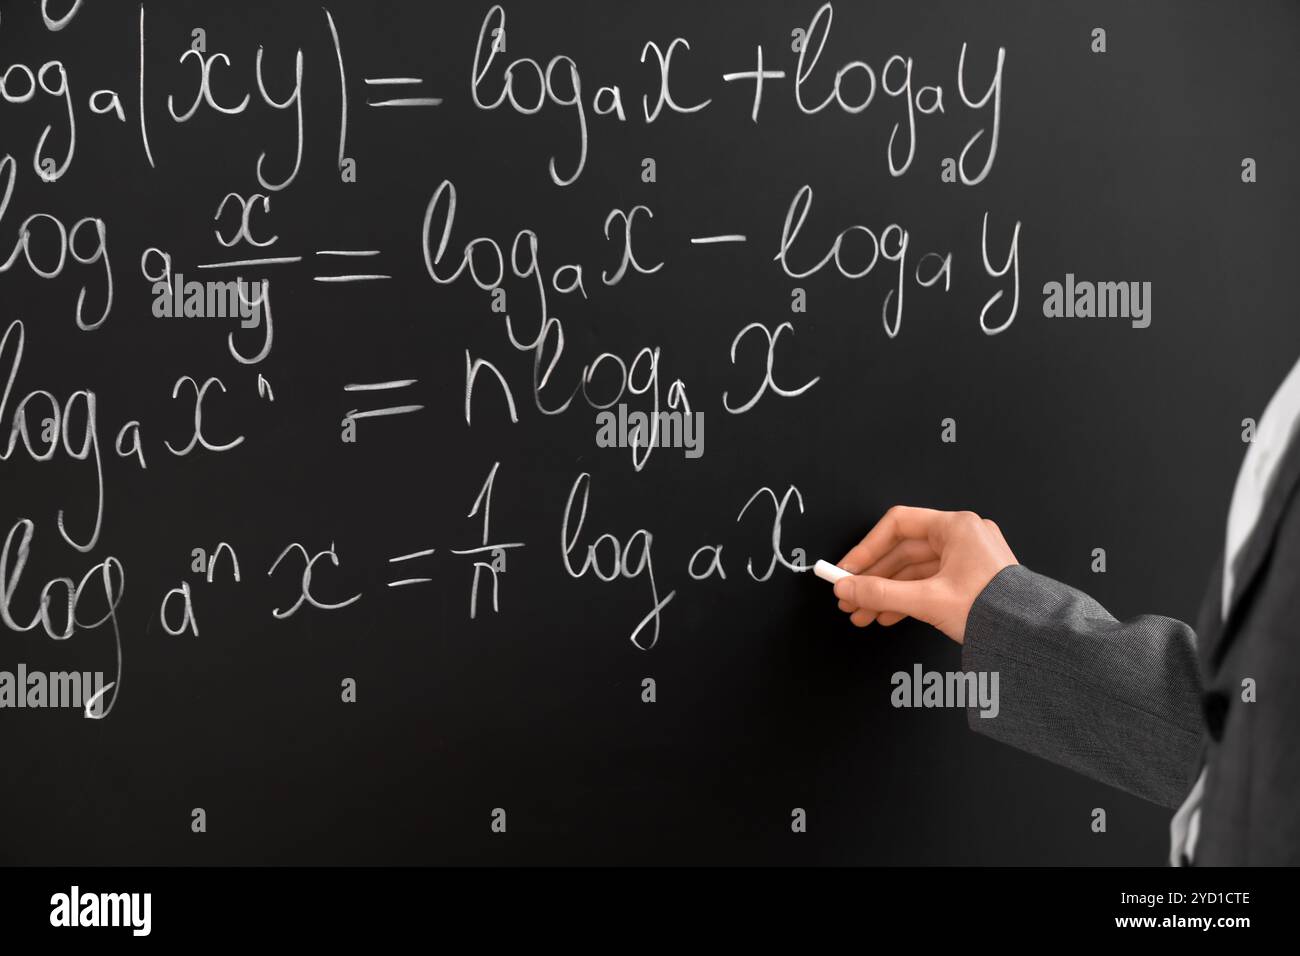 logₐ(xy) = logₐx + logₐy
logₐ x/y = logₐx − logₐy
logₐxⁿ = n logₐ x
log aⁿ x = 1/n log a x
alamy
alamy
alamy
alamy
alamy
Image ID: 2YD1CTE
www.alamy.com